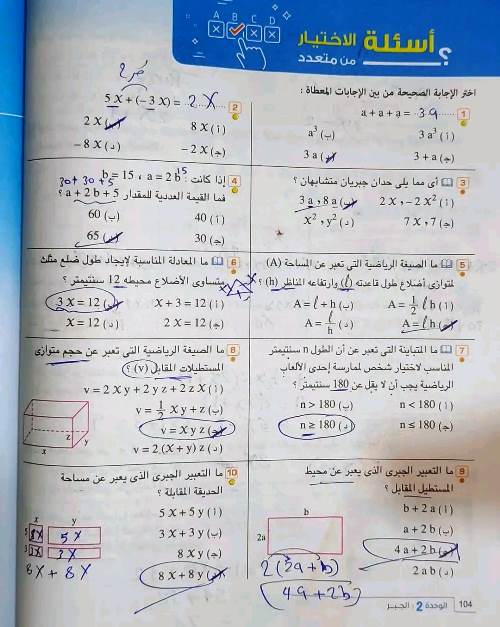 A B C D
أسئلة الاختيار
من متعدد
؟
اختر الإجابة الصحيحة من بين الإجابات المعطاة :
1 a + a + a = 3a
(أ) 3 a³ (ب) a³
(ج) 3 + a (د) 3 a
2 5 X + (– 3 X) = 2 X
(أ) 8 X (ب) 2 X
(ج) – 2 X (د) – 8 X
3 أى مما يلى حدان جبريان متشابهان ؟
(أ) 2 X ، – 2 X² (ب) 3 a ، 8 a
(ج) 7 X ، 7 (د) X² ، y²
4 إذا كانت : a = 2 b ، b = 15
15
30 + 30 + 5
فما القيمة العددية للمقدار a + 2 b + 5 ؟
(أ) 40 (ب) 60
(ج) 30 (د) 65
5 ما الصيغة الرياضية التى تعبر عن المساحة (A)
لمتوازى أضلاع طول قاعدته (ℓ) وارتفاعه المناظر (h) ؟
(أ) A = 1/2 ℓ h (ب) A = ℓ + h
(ج) A = ℓ h (د) A = ℓ/h
6 ما المعادلة المناسبة لإيجاد طول ضلع مثلث
متساوى الأضلاع محيطه 12 سنتيمتر ؟
X X X
(أ) X + 3 = 12 (ب) 3 X = 12
(ج) 2 X = 12 (د) X = 12
7 ما المتباينة التى تعبر عن أن الطول n سنتيمتر
المناسب لاختيار شخص لممارسة إحدى الألعاب
الرياضية يجب أن لا يقل عن 180 سنتيمتر ؟
(أ) n < 180 (ب) n > 180
(ج) n ≤ 180 (د) n ≥ 180
8 ما الصيغة الرياضية التى تعبر عن حجم متوازى
المستطيلات المقابل (v) ؟
(أ) v = 2 X y + 2 y z + 2 z X
(ب) v = 1/2 X y + z
(ج) v = X y z
(د) v = 2 (X + y) z
x y z
9 ما التعبير الجبرى الذى يعبر عن محيط
المستطيل المقابل ؟
(أ) b + 2 a
(ب) a + 2 b
(ج) 4 a + 2 b
(د) 2 a b
b
2a
2 (2a + b)
(4a + 2b)
10 ما التعبير الجبرى الذى يعبر عن مساحة
الحديقة المقابلة ؟
(أ) 5 X + 5 y
(ب) 3 X + 3 y
(ج) 8 X y
(د) 8 X + 8 y
x y
5
3
8X + 8X
104 الوحدة 2 : الجبر